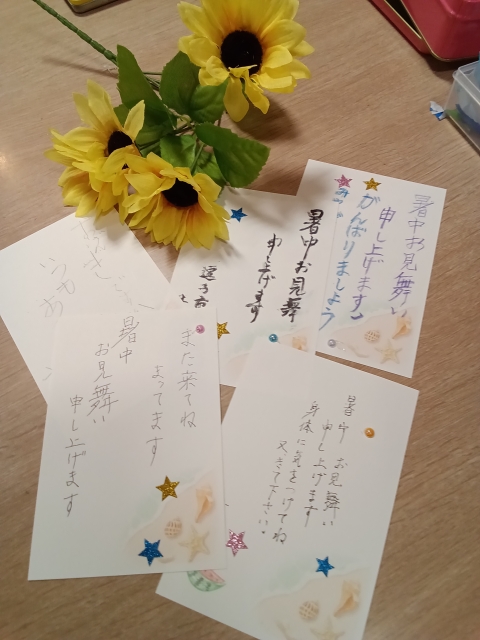 暑中お見舞い
申し上げます
がんばりましょう
暑中お見舞
申し上げます
暑中
お見舞い
申し上げます
また来てね
まってます
暑中 お見舞い
申し上げます
身体に気をつけてね
又きて下さい。